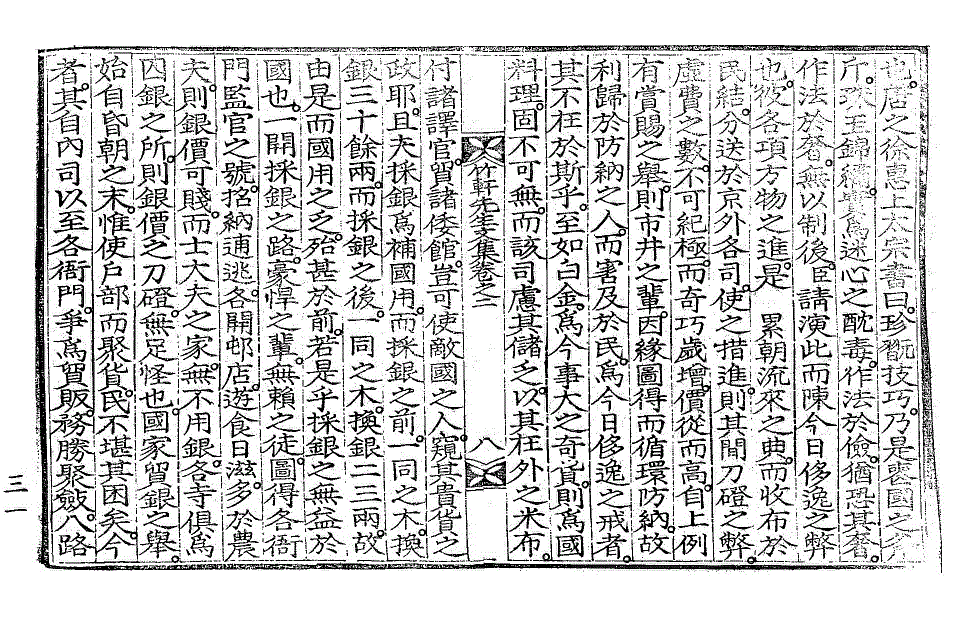 也。唐之徐惠上太宗書曰。珍翫技巧。乃是喪國之斧
斤。珠玉錦繡。實爲迷心之酖毒。作法於儉。猶恐其奢。
作法於奢。無以制後。臣請演此而陳今日侈逸之弊
也。彼各項方物之進。是 累朝流來之典。而收布於
民結。分送於京外各司。使之措進。則其間刀磴之弊。
虛費之數。不可紀極。而奇巧歲增。價從而高。自上例
有賞賜之舉。則市井之輩。因緣圖得。而循環防納。故
利歸於防納之人。而害及於民。爲今日侈逸之戒者。
其不在於斯乎。至如白金。爲今事大之奇貨。則爲國
料理。固不可無。而該司慮其儲乏。以其在外之米布。
竹軒先生文集卷之二 八
付諸譯官。貿諸倭館。豈可使敵國之人。窺其貴貨之
政耶。且夫採銀爲補國用。而採銀之前。一同之木。換
銀三十餘兩。而採銀之後。一同之木。換銀二三兩。故
由是而國用之乏。殆甚於前。若是乎採銀之無益於
國也。一開採銀之路。豪悍之輩。無賴之徒。圖得各衙
門監官之號。招納逋逃。各開邨店。遊食日滋。多於農
夫。則銀價可賤。而士大夫之家。無不用銀。各寺俱爲
因銀之所。則銀價之刀磴。無足怪也。國家貿銀之舉。
始自昏朝之末。惟使戶部而聚貨。民不堪其困矣。今
者。其自內司以至各衙門。爭爲貿販。務勝聚斂。八路
三一